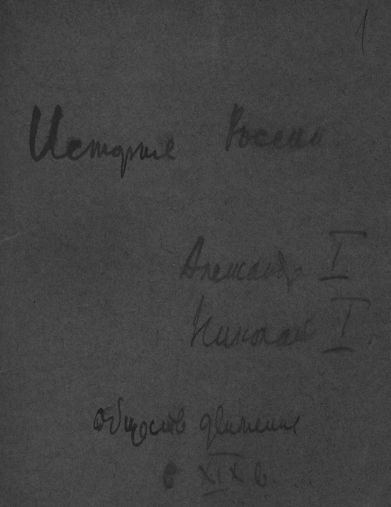 1
История России
Александр I
Николай I
обществ движение
в XIX в.